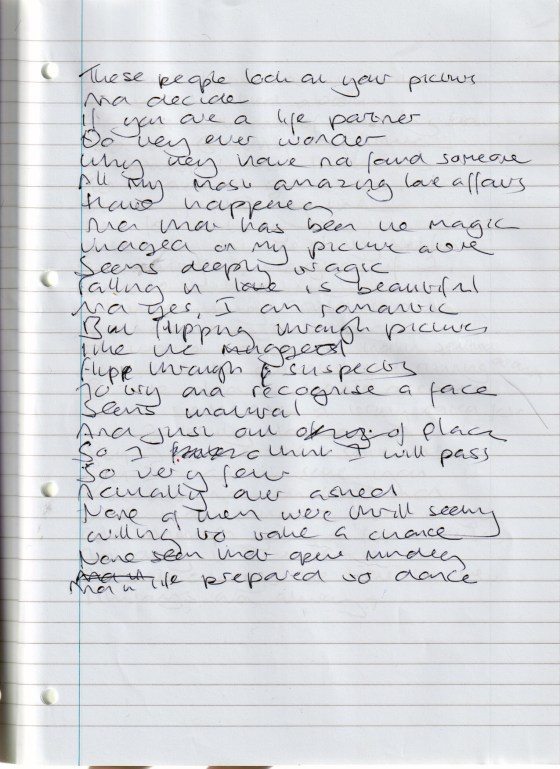 These people look at your pictures
And decide
If you are a life partner
Do they ever wonder
Why they have not found someone
All my most amazing love affairs
Have happened
And that has been the magic
on my picture alone
Seems deeply tragic
Falling in love is beautiful
And yes, I am romantic
But flipping through pictures
Like the
through suspects
To try and recognise a face
Seems unnatural
And just out of place
So I think I will pass
So very few
Actually ever asked
None of them were
willing to take a chance
None seem that open minded
And in life prepared to dance